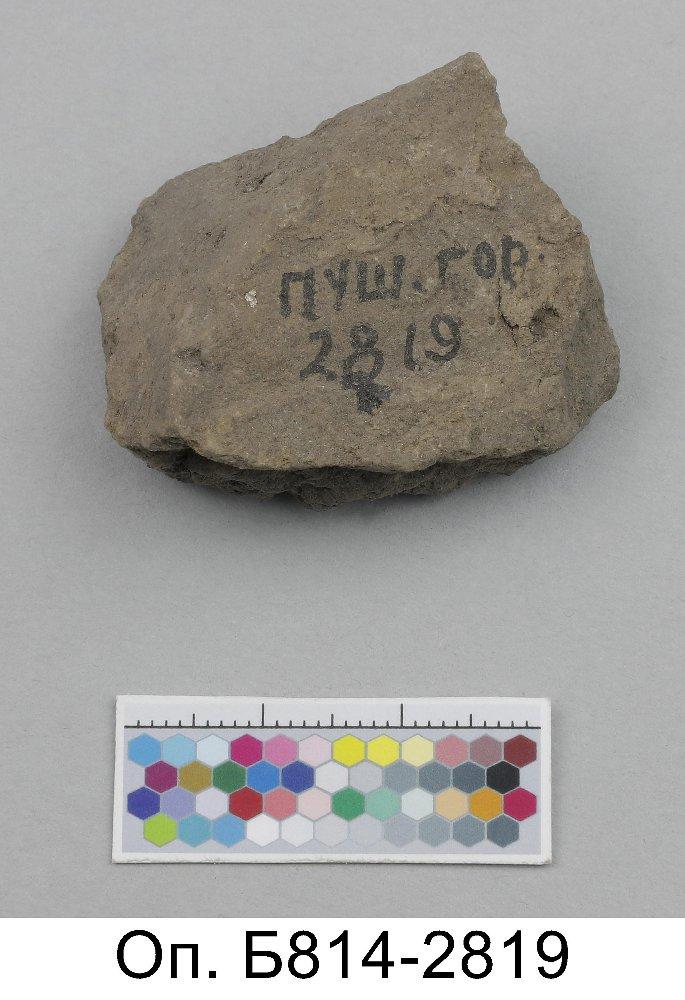 ПУШ. ГОР.
2819
Оп. Б814-2819